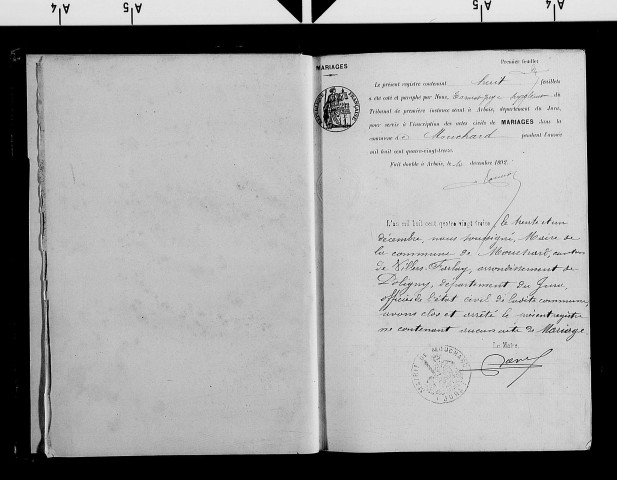 A4
A5
A5
A4
Premier feuillet
MARIAGES
Le présent registre contenant huit feuillets
a été coté et paraphé par Nous,
Tribunal de première instance séant à Arbois, département du Jura,
pour servir à l'inscription des actes civils de MARIAGES dans la
commune de Mouchard pendant l'année
mil huit cent quatre-vingt-treize.
Fait double à Arbois, le décembre 1892.
L'an mil huit cent quatre vingt treize, le trente et un
décembre, nous soussigné, Maire de
la commune de Mouchard, canton
de Villers-Farlay, arrondissement de
Poligny, département du Jura,
officier de l'état civil de ladite commune,
avons clos et arrêté le présent registre
ne contenant aucun acte de Mariage
Le Maire,
MAIRIE DE MOUCHARD
JURA